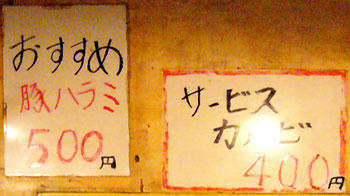 おすすめ
豚ハラミ
500円
サービス
カルビ
400円